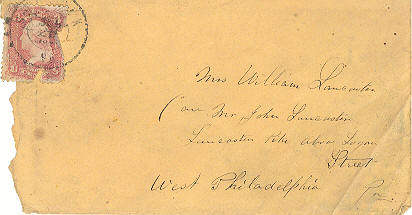 Mrs William Lancaster
(care Mr. John Lancaster
Lancaster Pike above
Street
West Philadelphia
Pa.